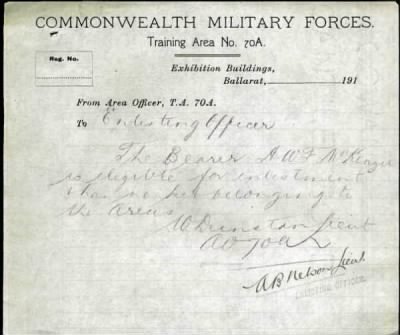 COMMONWEALTH MILITARY FORCES.
Training Area No. 70A.
Reg. No.
Exhibition Buildings,
Ballarat, 191
From Area Officer, T.A. 70A.
To Enlesting Officer
The Bearer A.W.F. McKenzie
is elegible for enlestment
& has no belonging to
the Area
W Dunstan Lieut
AO 70A
A B Nelson Lieut.
ENLISTING OFFICER